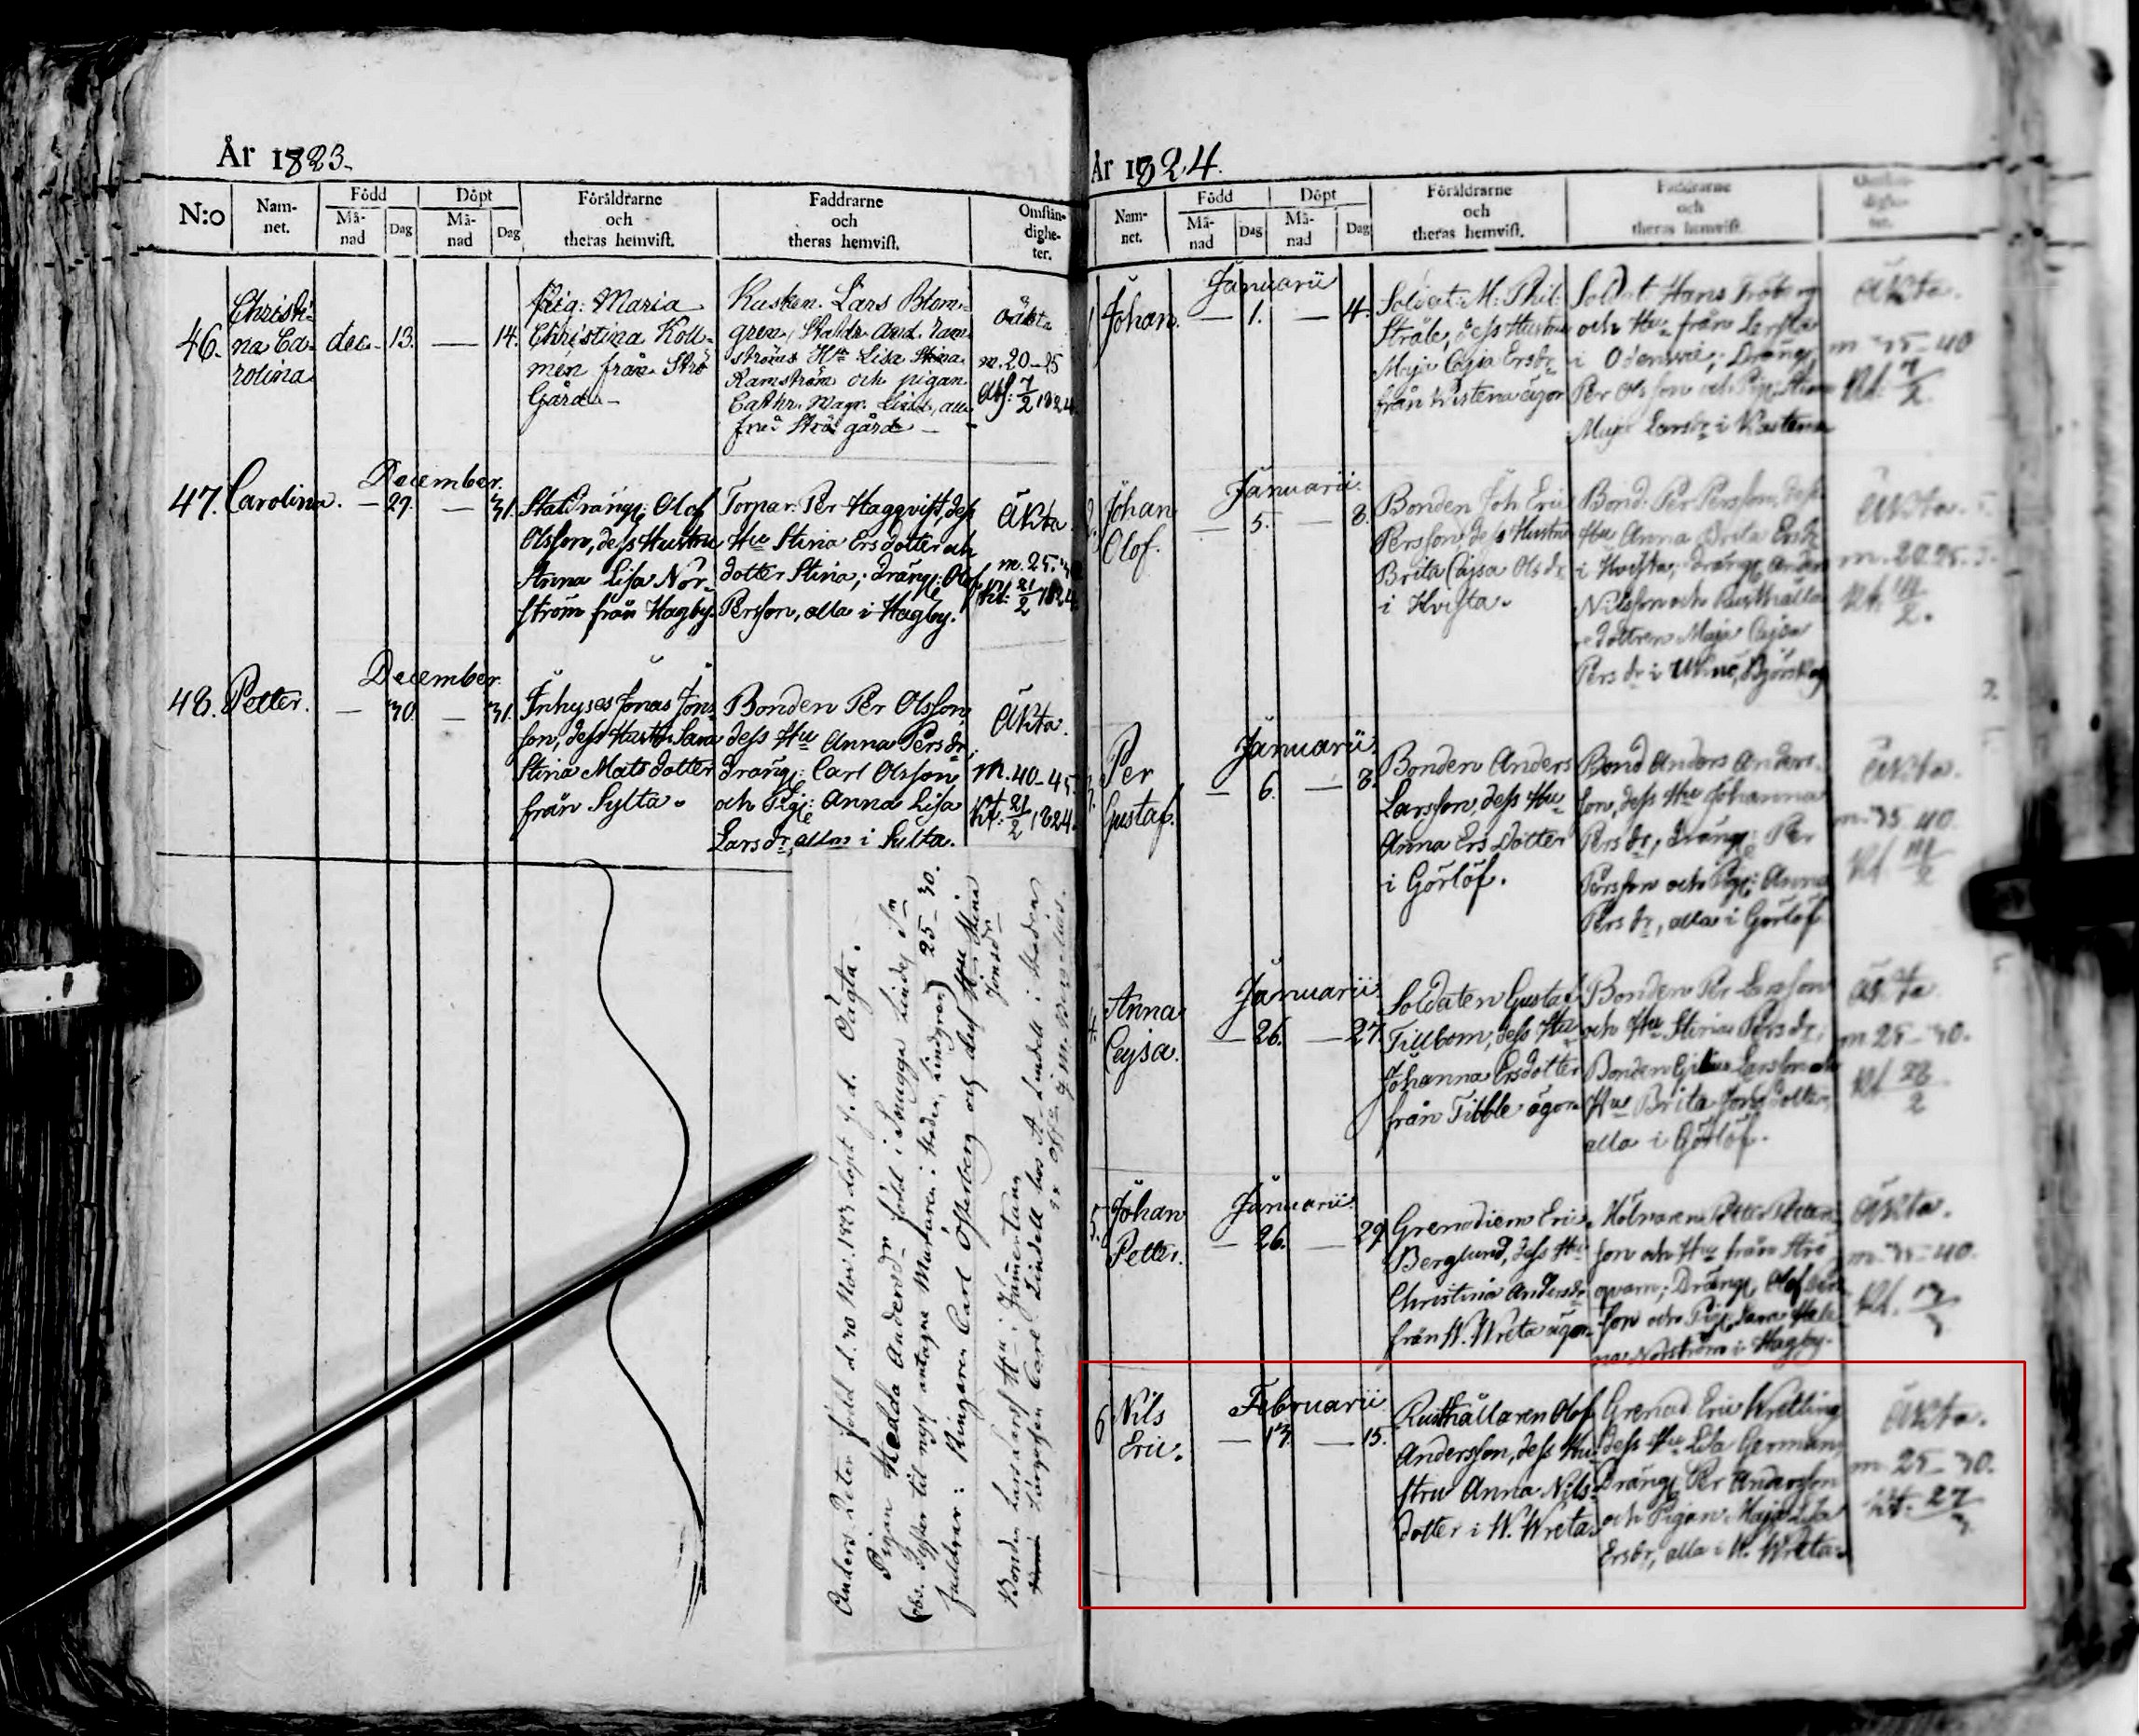 År 1823.
N:o
Nam-
net.
Född
Må-
nad
Dag
Döpt
Må-
nad
Dag
Föräldrarne
och
theras hemvist.
Faddrarne
och
theras hemvist.
Omstän-
dighe-
ter.
46.
Christi-
na Ca-
rolina
dec.
13.
—
14.
Pig: Maria
Christina Koll-
men från Strö
Gård. —
Kusken Lars Blom-
gren,
ströms Hu Lisa Stina
Ramström och pigan
Cathr. Magr. Lind, alla
från Strö gård —
oäkta
m. 20-25
Abs: 7/2 1824.
47.
Carolina.
December.
— 29. — 31.
Staldräng: Olof
Olsson, dess Hustru
Anna Lisa Nor-
ström från Hagby.
Torpar: Per Haggqvist, dess
Hu Stina Ersdotter och
dotter Stina; dräng: Olof
Persson, alla i Hagby.
Äkta
m. 25.
Kt: 21/2 1824
48.
Petter.
December.
— 30. — 31.
Inhyses Jonas Jons-
son, dess Hust: Sara
Stina Matsdotter
från Sylta.
Bonden Per Olsson
dess Hu Anna Persdr,
dräng: Carl Olsson
och Pig: Anna Lisa
Larsdr, allas i Sylta.
Äkta.
m. 40-45.
Kt: 21/2 1824.
Anders Peter född d. 30 Nov. 1823 döpt s. d. Oägta.
Pigan Hedda Andersdr född i Snugga Lindes Sn
(obs. Syster til nyss antagne Muraren i Staden, Lindgren) 25-30.
faddrar: Ringaren Carl Österberg och dess Hu Stina
Jonsdr
Bonden Lars Lars Hu i Jämertuna
Färgaren Carl Lindell hos A. Lindell i Staden
ex off. J. M. Bergelius.
År 1824.
Nam-
net.
Född
Må-
nad
Dag
Döpt
Må-
nad
Dag
Föräldrarne
och
theras hemvist.
Faddrarne
och
theras hemvist.
Omstän-
dighe-
ter.
1.
Johan.
Januarii
— 1. — 4.
Soldat: M: Phil:
Stråle, dess Hustru
Maja Cajsa Ersdr
från Wistena ägor
Soldat Hans Fröberg
och Hu från Lersta
i Odensvi; Dräng:
Per Olsson och Pig: Stina
Maja Larsdr i Wistena
Äkta.
m 35-40
Kt: 7/2.
2.
Johan
Olof.
Januarii.
— 5. — 8.
Bonden Joh Eric
Persson dess Hustru
Brita Cajsa Olsdr.
i Hvista.
Bond: Per Persson, dess
Hu Anna Brita Ersdr
i Hvista; dräng: Anders
Nilsson och Rusthålla-
redottren Maja Cajsa
Persdr i
Äkta.
m. 20.25.
3.
Per
Gustaf.
Januarii.
— 6. — 8.
Bonden Anders
Larsson, dess Hu
Anna Ersdotter
i Görlöf.
Bond Anders Anders-
son, dess Hu Johanna
Persdr, dräng: Per
Persson och Pig: Anna
Persdr, alla i Görlöf
Äkta.
m. 35 40.
4.
Anna
Cajsa.
Januarii.
— 26. — 27.
Soldaten Gustaf
Tillbom, dess Hu
Johanna Ersdotter
från Tibble ägor
Bonden Per Larsson
och Hu Stina Persdr;
Bonden Larsson och
Hu Brita Jonsdotter,
alla i Görlöf.
Äkta
m. 25-30.
Kt 28/2
5.
Johan
Petter.
Januarii.
— 26. — 29
Grenadieren Eric
Berglund, dess Hu
Christina Andersdr
från W. Wreta ägor
Mölnaren Petter Petters-
son och Hu från Strö
qvarn; Dräng: Olof
son och Pig: Sara Hele-
na Norström i Hagby.
Äkta.
m. 35-40.
6
Nils
Eric.
Februarii
— 13. — 15.
Rusthållaren Olof
Andersson, dess Hu-
stru Anna Nils-
dotter i W. Wreta.
Grenad. Eric Wretling
dess Hu Lisa German,
Dräng: Per Andersson
och Pigan Maja Lisa
Ersdr, alla i W. Wreta.
Äkta.
m. 25-30.
Kt. 27/3